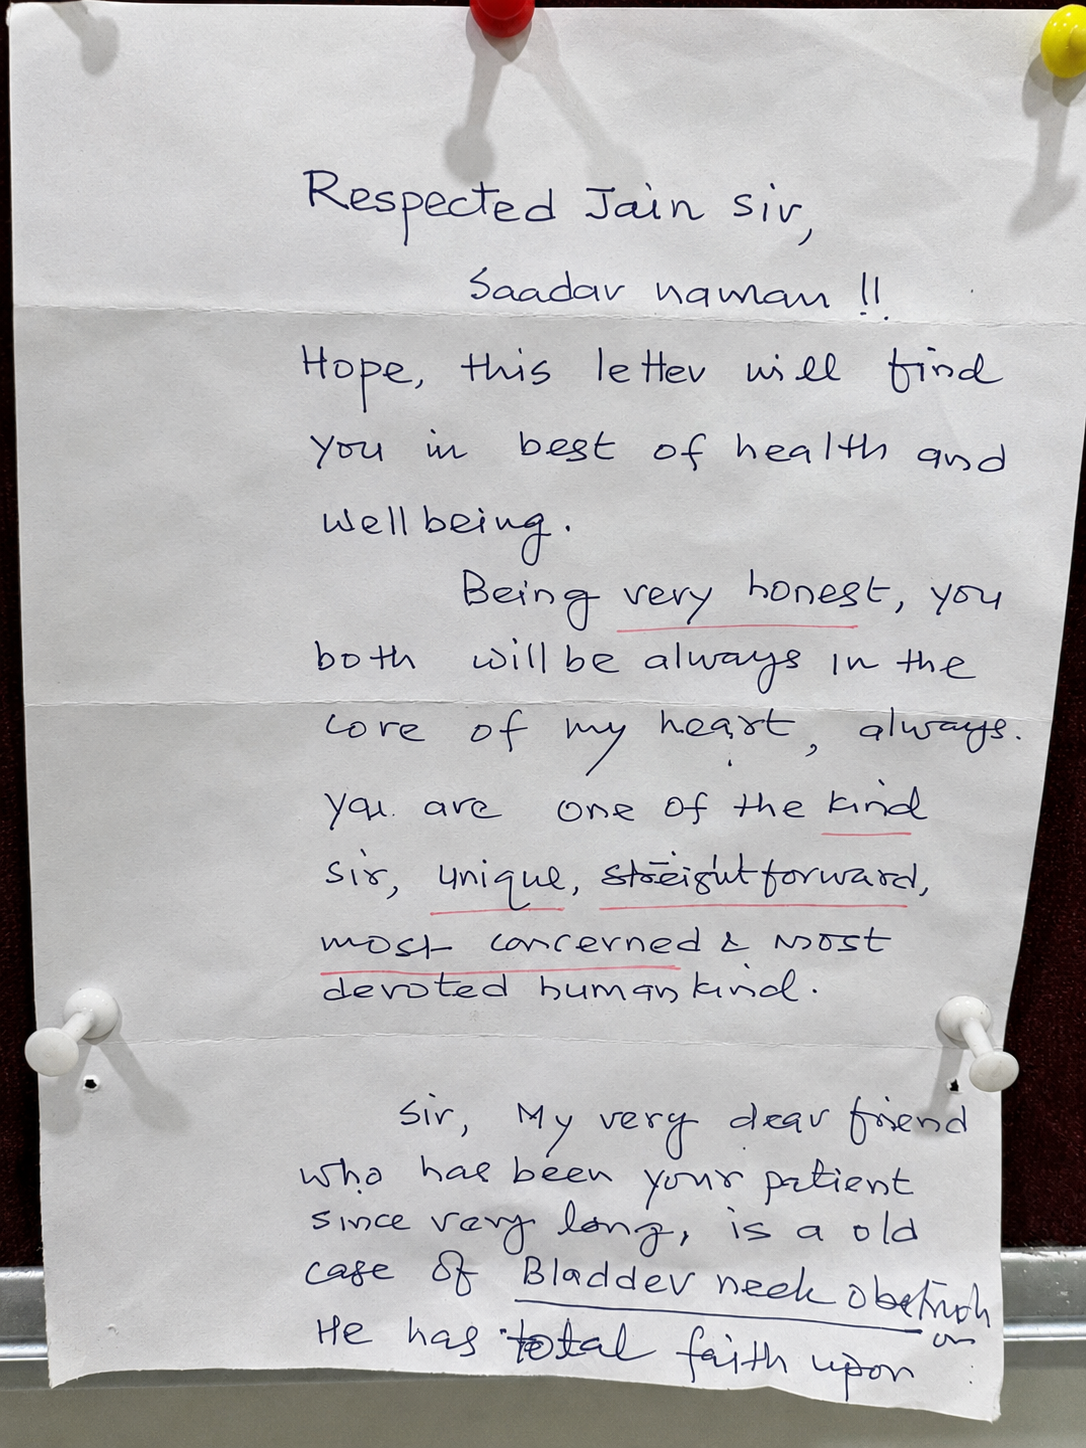 Respected Jain Sir,
Saadar naman !!
Hope, this letter will find
you in best of health and
well being.
Being very honest, you
both will be always in the
core of my heart, always.
you are one of the kind
sir, unique, streightforward,
most concerned & most
devoted human kind.
Sir, My very dear friend
who has been your patient
since very long, is a old
case of Bladder neck obstruction
He has total faith upon